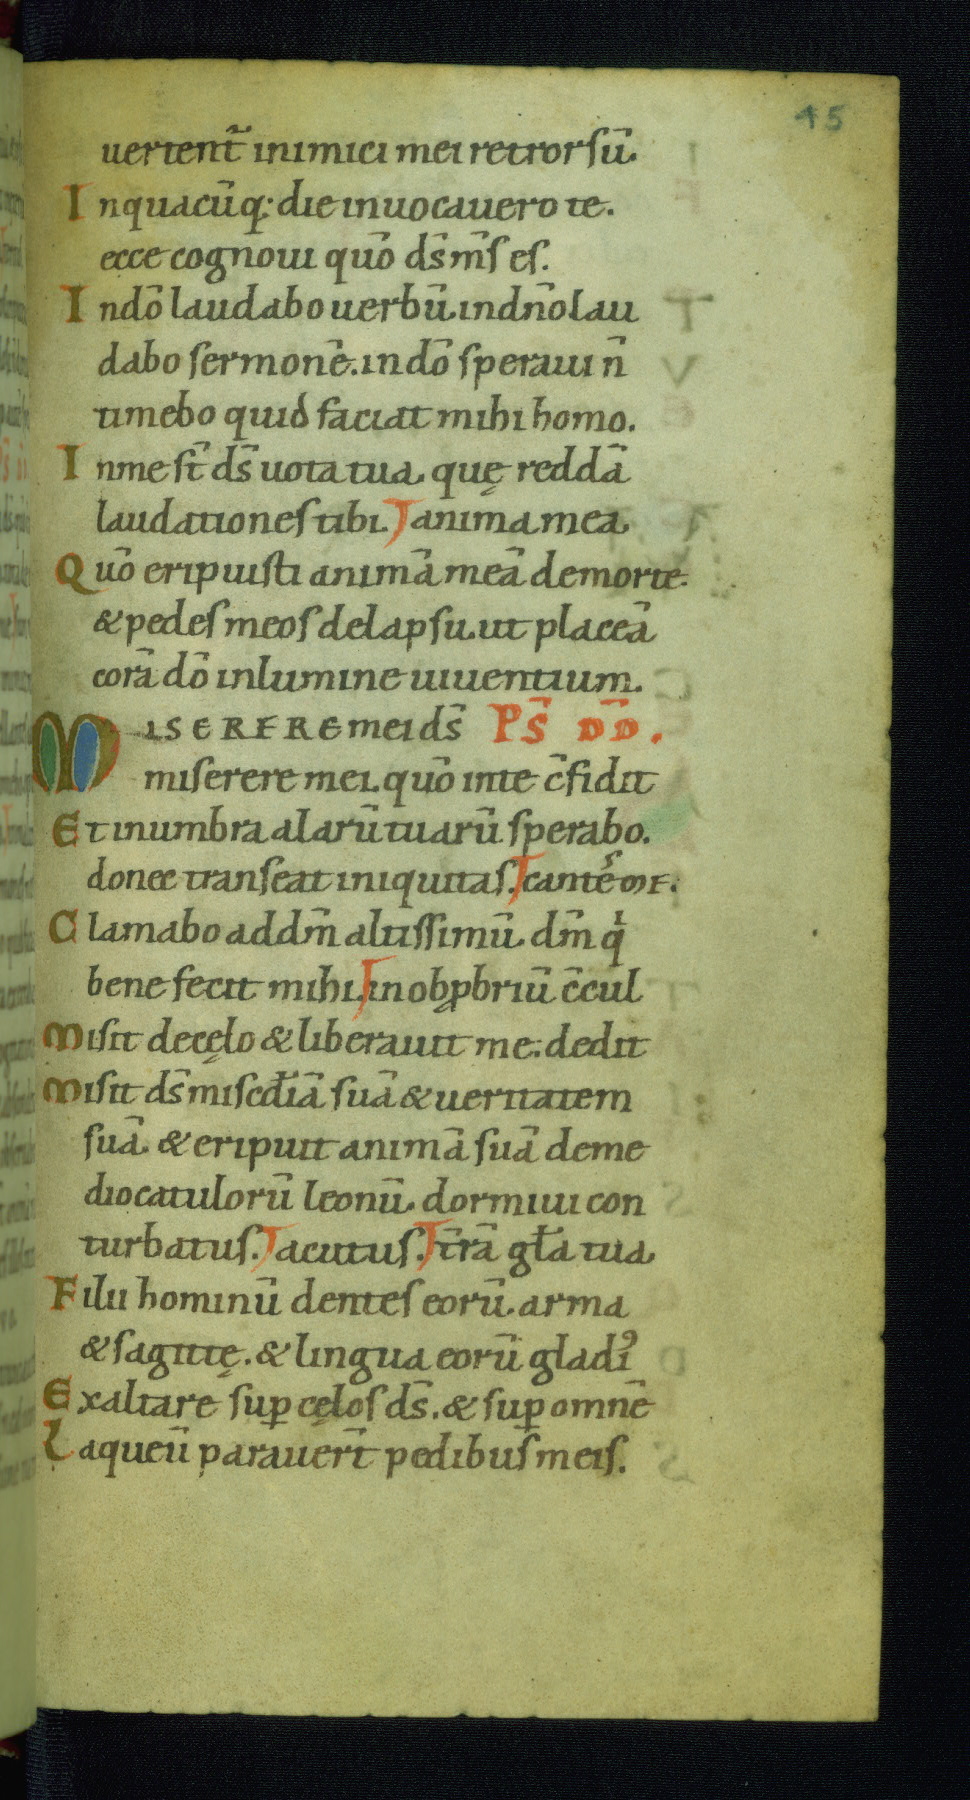 45
uertent᷑ inimici mei retrorsū.
Inquacūq; die inuocauero te.
ecce cognoui quō ds̄ ms̄ es.
Indō laudabo uerbū. indn̄o lau
dabo sermonē. indō speraui n̄
timebo quid faciat mihi homo.
Inme st̄ ds̄ uota tua. quę reddā
laudationes tibi. anima mea.
Quō eripuisti animā meā demorte.
& pedes meos delapsu. ut placeā
corā dō inlumine uiuentium.
MISERERE mei ds̄ Ps̄ DD̄.
miserere mei. quō inte c̄fidit
Et inumbra alarū tuarū sperabo.
donec transeat iniquitas.
Clamabo addm̄ altissimū. dm̄ qi
bene fecit mihi. inobꝓbriū c̄cul
Misit decęlo & liberauit me. dedit
Misit ds̄ misc̄diā suā & ueritatem
suā. & eripuit animā suā deme
diocatulorū leonū. dormiui con
turbatus. acutus. tr̄a gła tua.
Filii hominū dentes eorū. arma
& sagittę. & lingua eorū gladi⁹
Exaltare suꝑ cęlos ds̄. & suꝑ omnē
Laqueū parauer̄t pedibus meis.